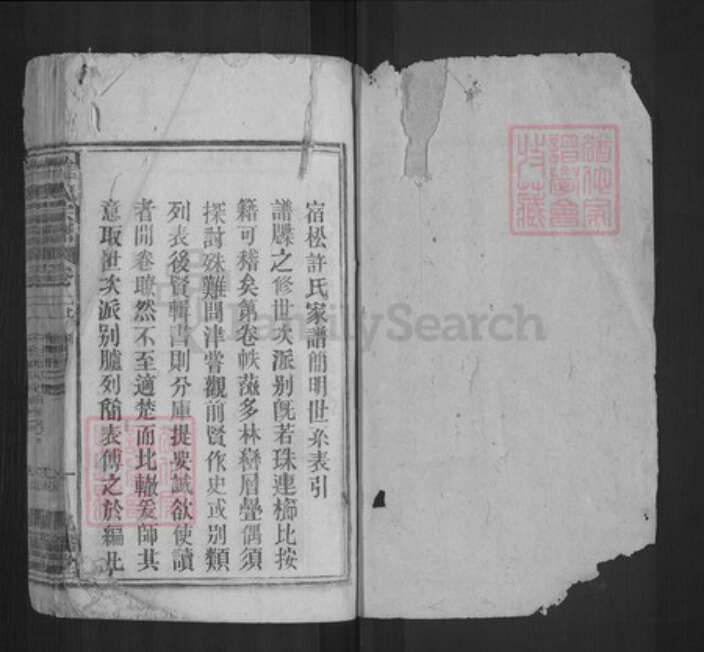 宿松許氏家譜簡明世系表引
譜牒之修世次派别旣若珠連櫛比按
籍可稽矣第卷帙蕴多林巒層疊偶須
探討殊難問津嘗觀前賢作史或别類
列表後賢輯書則分庫提要誠欲使讀
者開卷瞭然不至適楚而北轍爰師其
意取世次派别臚列簡表傅之於編此
FamilySearch